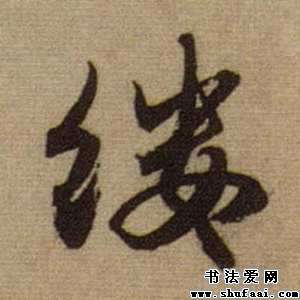 缕
书法爱网
www.shufaai.com